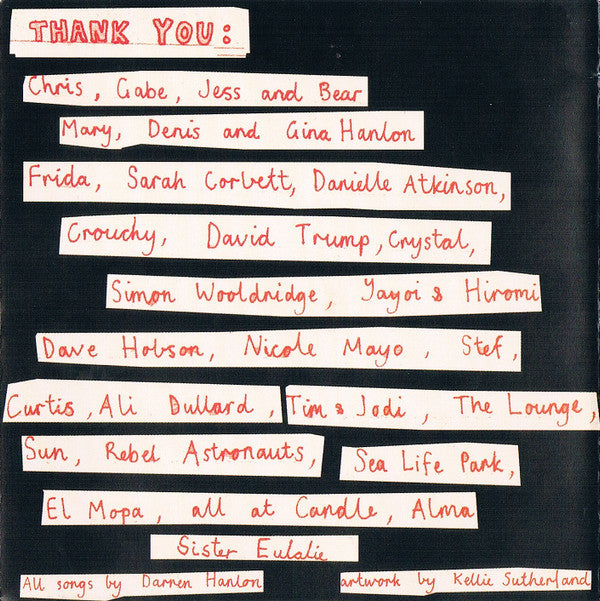 THANK YOU:
Chris, Gabe, Jess and Bear
Mary, Denis and Gina Hanlon
Frida, Sarah Corbett, Danielle Atkinson,
Crouchy, David Trump, Crystal,
Simon Wooldridge, Yayoi & Hiromi
Dave Hobson, Nicole Mayo, Stef,
Curtis, Ali Dullard, Tim & Jodi, The Lounge,
Sun, Rebel Astronauts, Sea Life Park,
El Mopa, all at Candle, Alma
Sister Eulalie
All songs by Darren Hanlon artwork by Kellie Sutherland